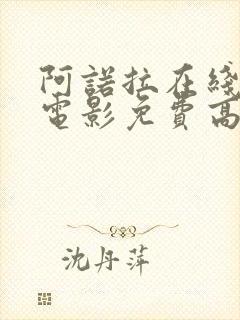 阿諾拉在綫
電影免費高
沈丹萍